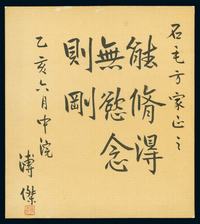 石毛方家正之
能脩得
無慾念
則剛
乙亥六月中浣
溥傑